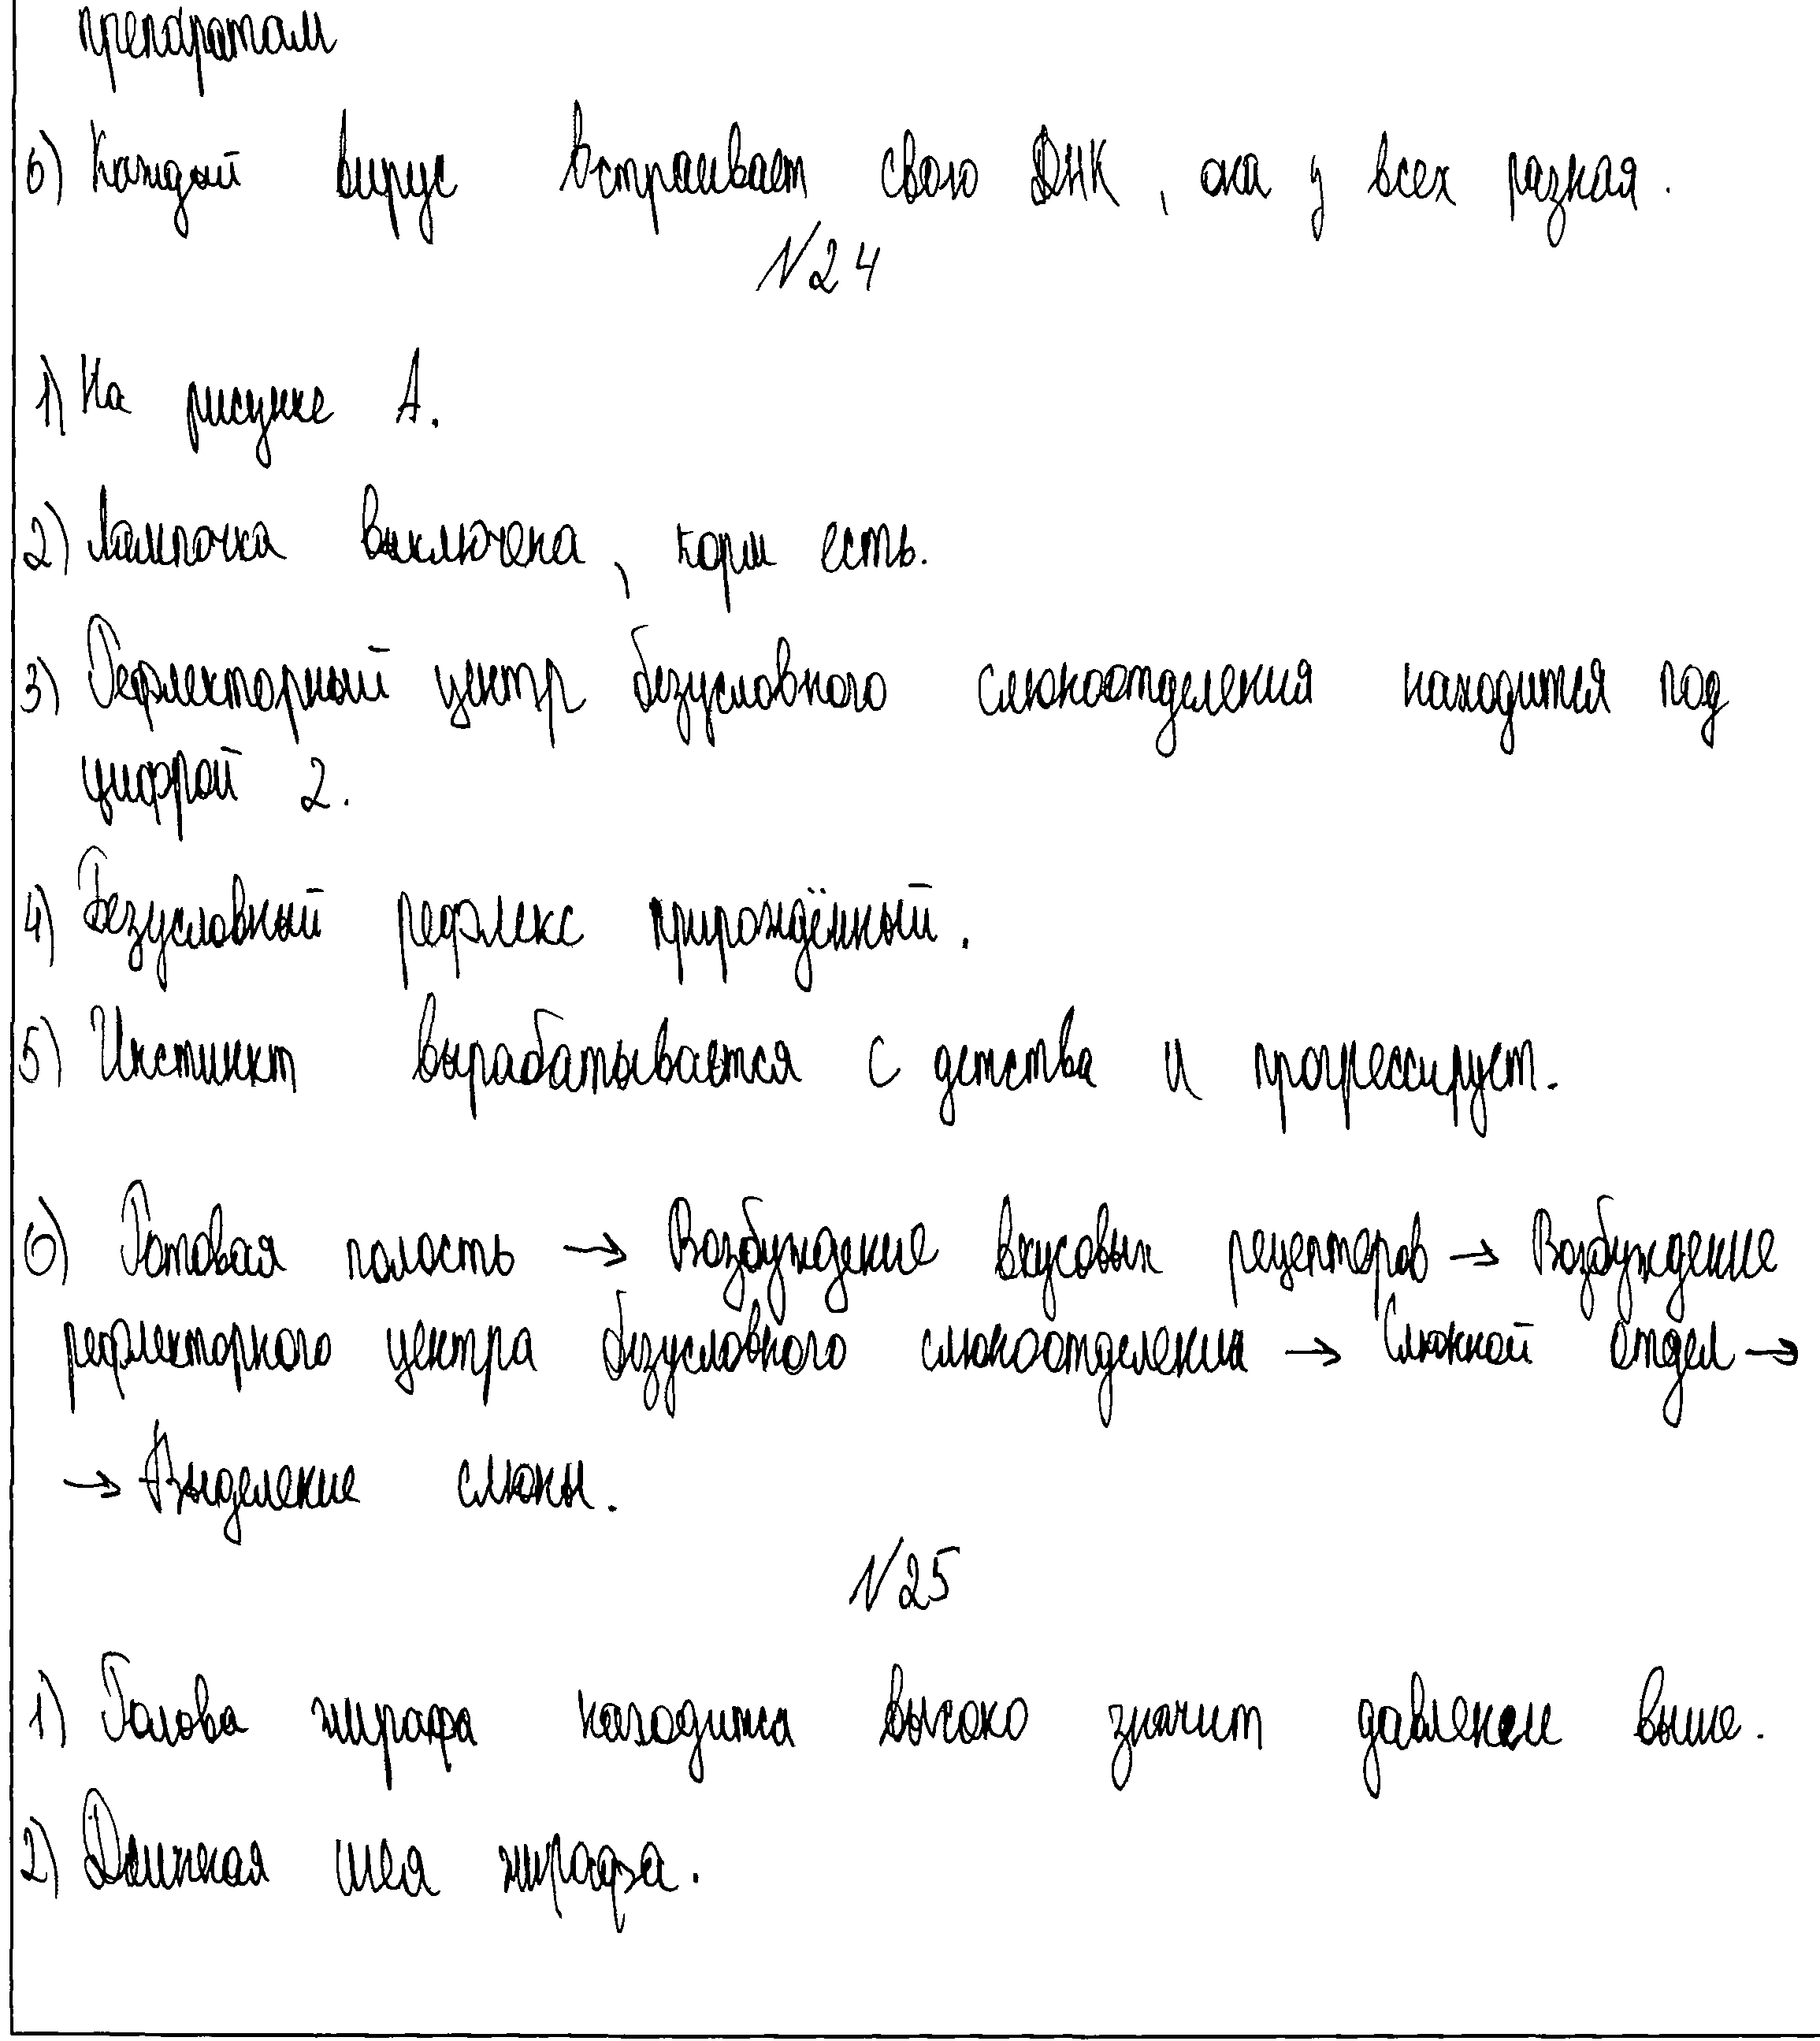 препаратам
6) Каждый вирус встраивает свою ДНК, она у всех разная.
№24
1) На рисунке А.
2) Лампочка выключена, корм есть.
3) Рефлекторный центр безусловного слюноотделения находится под
цифрой 2.
4) Безусловный рефлекс прирождённый.
5) Инстинкт вырабатывается с детства и прогрессирует.
6) Ротовая полость → Возбуждение вкусовых рецепторов → Возбуждение
рефлекторного центра безусловного слюноотделения → Слюнной отдел →
→ Выделение слюны.
№25
1) Голова жирафа находится высоко значит давлении выше.
2) Длинная шея жирафа.